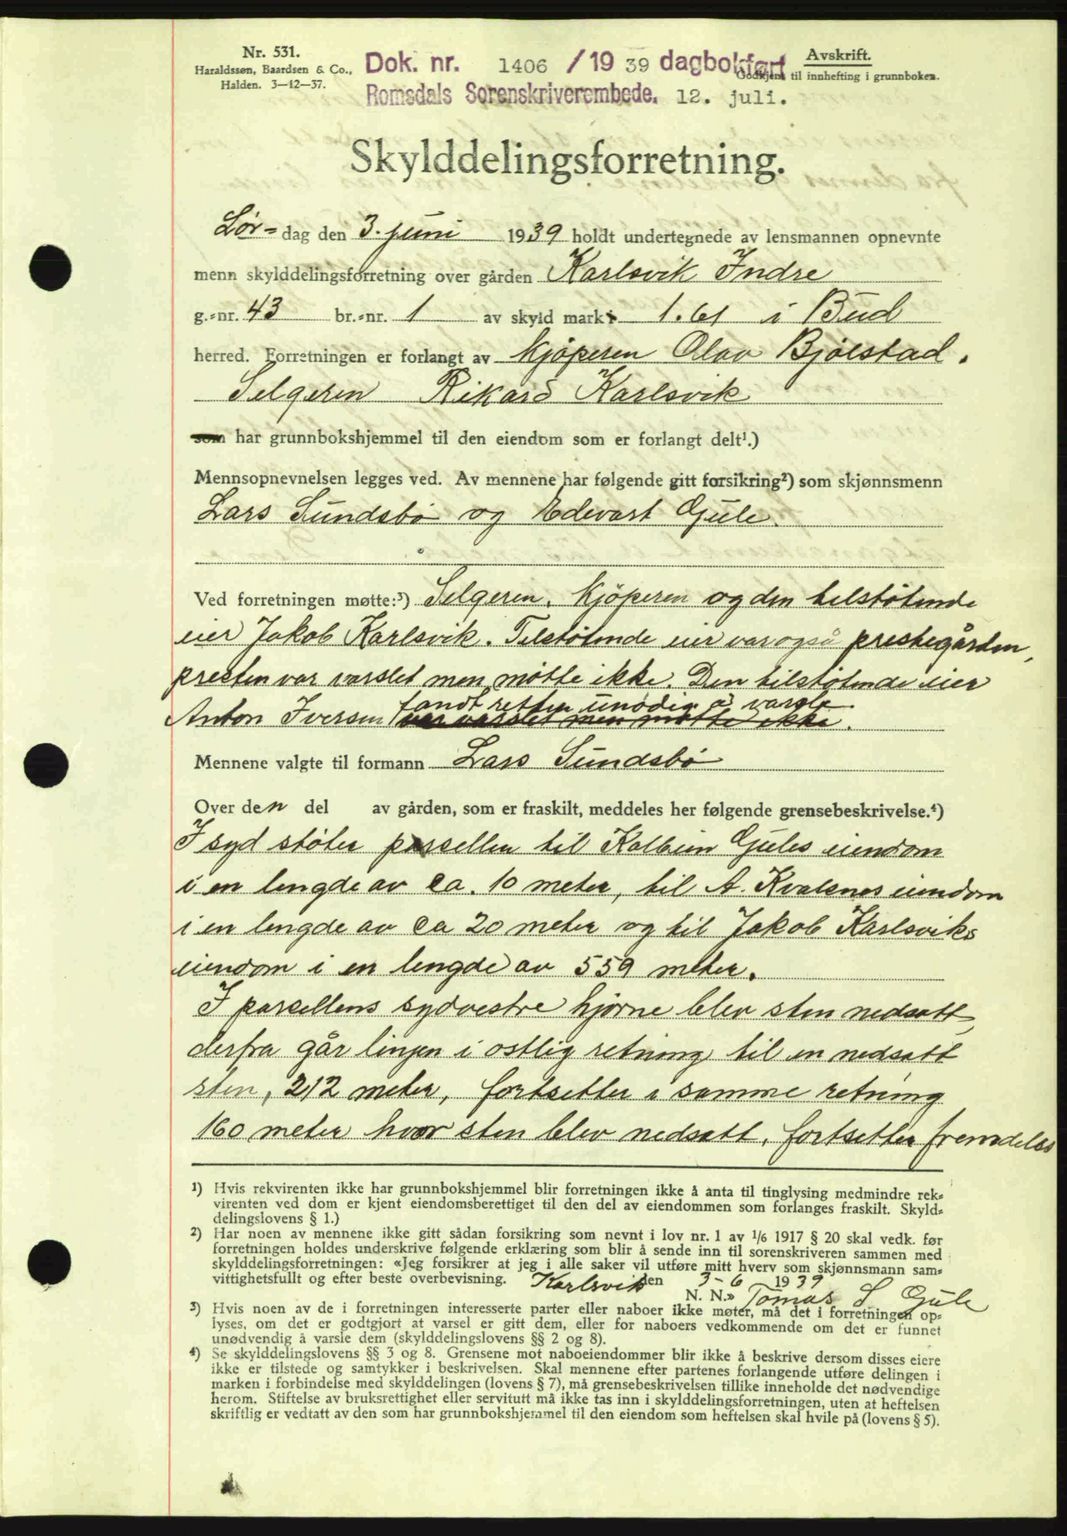 Nr. 531.
Haraldssøn, Baardsen & Co.,
Halden. 3—12—37.
Dok. nr. 1406 /19 39 dagbokført
Romsdals Sorenskriverembede. 12. juli.
Avskrift.
Godkjent til innhefting i grunnboken.
Skylddelingsforretning.
Lør- dag den 3. juni 1939 holdt undertegnede av lensmannen opnevnte
menn skylddelingsforretning over gården Karlsvik Indre
g.-nr. 43 br.-nr. 1 av skyld mark 1.61 i Bud
herred. Forretningen er forlangt av kjøperen Olav Bjølstad.
Selgeren Rikard Karlsvik
som har grunnbokshjemmel til den eiendom som er forlangt delt¹.)
Mennsopnevnelsen legges ved. Av mennene har følgende gitt forsikring²) som skjønnsmenn
Lars Sundsbö og Edevart Gule.
Ved forretningen møtte:³) Selgeren, kjöperen og den tilstötende
eier Jakob Karlsvik. Tilstötende eier var også prestegården,
presten var varslet men mötte ikke. Den tilstötende eier
fandt retten unödig å varsle
Anton Iversen var varslet men mötte ikke.
Mennene valgte til formann Lars Sundsbö
Over den del av gården, som er fraskilt, meddeles her følgende grensebeskrivelse.⁴)
I syd stöter parsellen til Kolbein Gules eiendom
i en lengde av ca. 10 meter, til A. Kvalsnes eiendom
i en lengde av ca 20 meter og til Jakob Karlsviks
eiendom i en lengde av 559 meter.
I parsellens sydvestre hjörne blev sten nedsatt,
derfra går linjen i ostlig retning til en nedsatt
sten, 212 meter, fortsetter i samme retning
160 meter hvor sten blev nedsatt, fortsetter fremdeles
¹) Hvis rekvirenten ikke har grunnbokshjemmel blir forretningen ikke å anta til tinglysing medmindre rek-
virenten ved dom er kjent eiendomsberettiget til den del av eiendommen som forlanges fraskilt. Skyld-
delingslovens § 1.)
²) Har noen av mennene ikke gitt sådan forsikring som nevnt i lov nr. 1 av 1/6 1917 § 20 skal vedk. før
forretningen holdes underskrive følgende erklæring som blir å sende inn til sorenskriveren sammen med
skylddelingsforretningen: «Jeg forsikrer at jeg i alle saker vil utføre mitt hverv som skjønnsmann sam-
vittighetsfullt og efter beste overbevisning. Karlsvik den 3-6 1939
N. N.» Tomas S Gule
³) Hvis noen av de i forretningen interesserte parter eller naboer ikke møter, må det i forretningen op-
lyses, om det er godtgjort at varsel er gitt dem, eller for naboers vedkommende om det er funnet
unødvendig å varsle dem (skylddelingslovens §§ 2 og 8).
⁴) Se skylddelingslovens §§ 3 og 8. Grensene mot naboeiendommer blir ikke å beskrive dersom disses eiere
ikke er tilstede og samtykker i beskrivelsen. Skal mennene efter partenes forlangende utføre delingen i
marken i forbindelse med skylddelingen (lovens § 7), må grensebeskrivelsen tillike inneholde det nødvendige
herom. Stiftelse av bruksrettighet eller servitutt må ikke tas inn i skylddelingsforretningen, uten at heftelsen
skriftlig er vedtatt av den som har grunnbokshjemmel til den eiendom som heftelsen skal hvile på (lovens § 5).